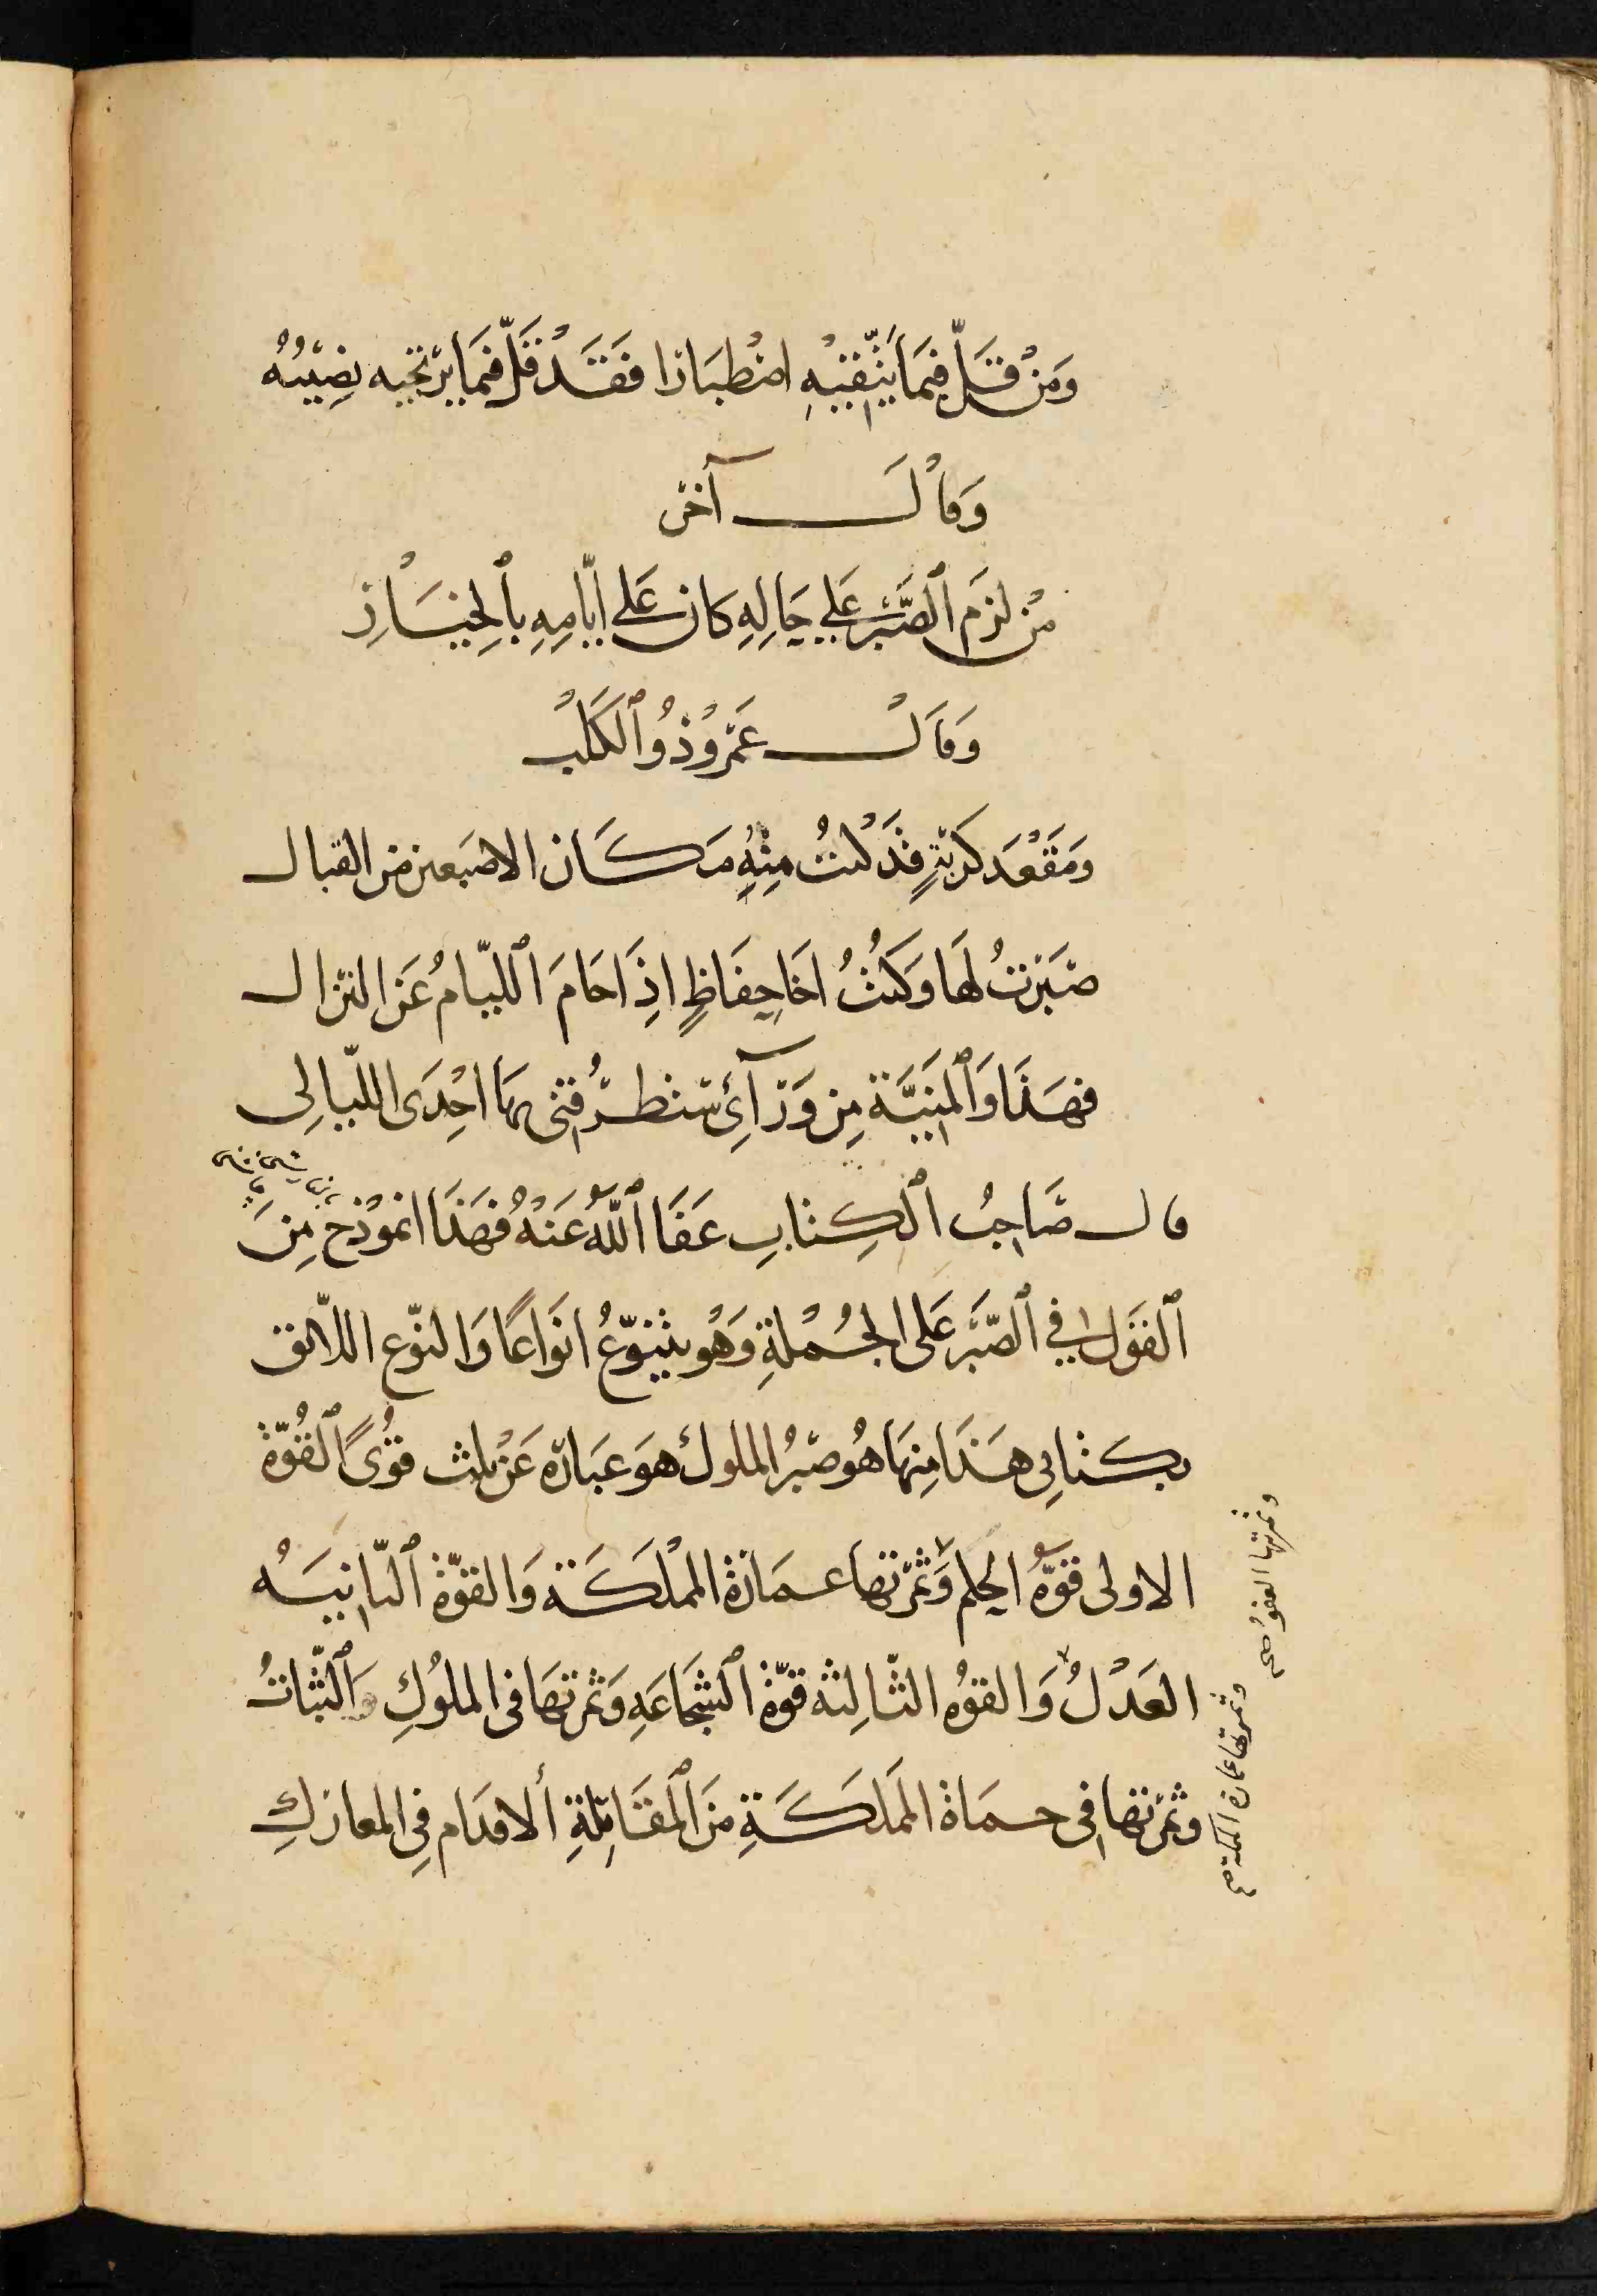 وَمَنْ قَلَّ فِيمَا يَتَّقِيْهِ اصْطِبَارًا فَقَدْ قَلَّ فِيمَا يَرْتَجِيه نَصِيْبُهُ
وَقَالَ آخَر
مَنْ لَزِمَ ٱلصَّبْرَ عَلَى حَالِهِ كَانَ عَلَى أيَّامِهِ بِٱلْخِيَارِ
وَقَالَ عَمْرو ذُو ٱلكَلْبِ
وَمَقْعَدِ كُرْبَةٍ قَدْ كُنْتُ مِنْهِ مَكَان الاصْبَعين مِن القبال
صَبَرْتُ لَهَا وَكُنْتُ اخَا حِفَاظٍ اذَا خَامَ اللِّيَامُ عَن النزال
فهَذَا وَٱلْمَنِيَّة مِن وَرَآئِي سَتَطرُقني بهَا احْدَى اللّيَالِي
قال صَاحِبُ ٱلكِتَابِ عَفَا ٱللَّهُ عَنْهُ فَهَذَا انموذج مِنَ
ٱلقَوْل فِي ٱلصَّبْرِ عَلَى الجُمْلَةِ وَهُو يتنوّعُ انوَاعًا وَالنوّع اللاّئق
بكتابِي هَذَا مِنهَا هُو صَبْرُ الملوك هوَ عبَارَة عَنْ ثلث قوًى ٱلقُوّة
الاولى قوّة الحِلم وَثمرتها عمَارَة المملَكَة وَالقوّة ٱلثانيَة
العَدْلُ وَالقوّة الثّالِثة قوّة ٱلشجَاعَةِ وَثمرتهَا في الملُوكِ ٱلثّبَاتُ
وثمرتها في حمَاة المَملَكَةِ مِنَ ٱلمقَاتِلَةِ ٱلاقدَام فِي المعَارَكِ
وثمرتها العفو صح
وثمرتها عمارة المملكة صح